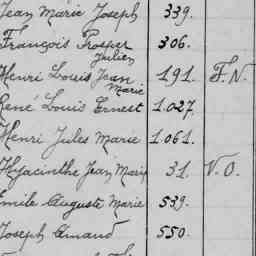 Jean Marie Joseph 339.
François Prosper Julien 306.
Henri Louis Jean Marie 191. F.N.
René Louis Ernest 1.027.
Henri Jules Marie 1.061.
Hyacinthe Jean Marie 31. V.O.
Emile Auguste Marie 539.
Joseph Amand 550.